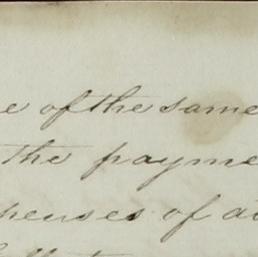 e of the same
the payme
penses of a